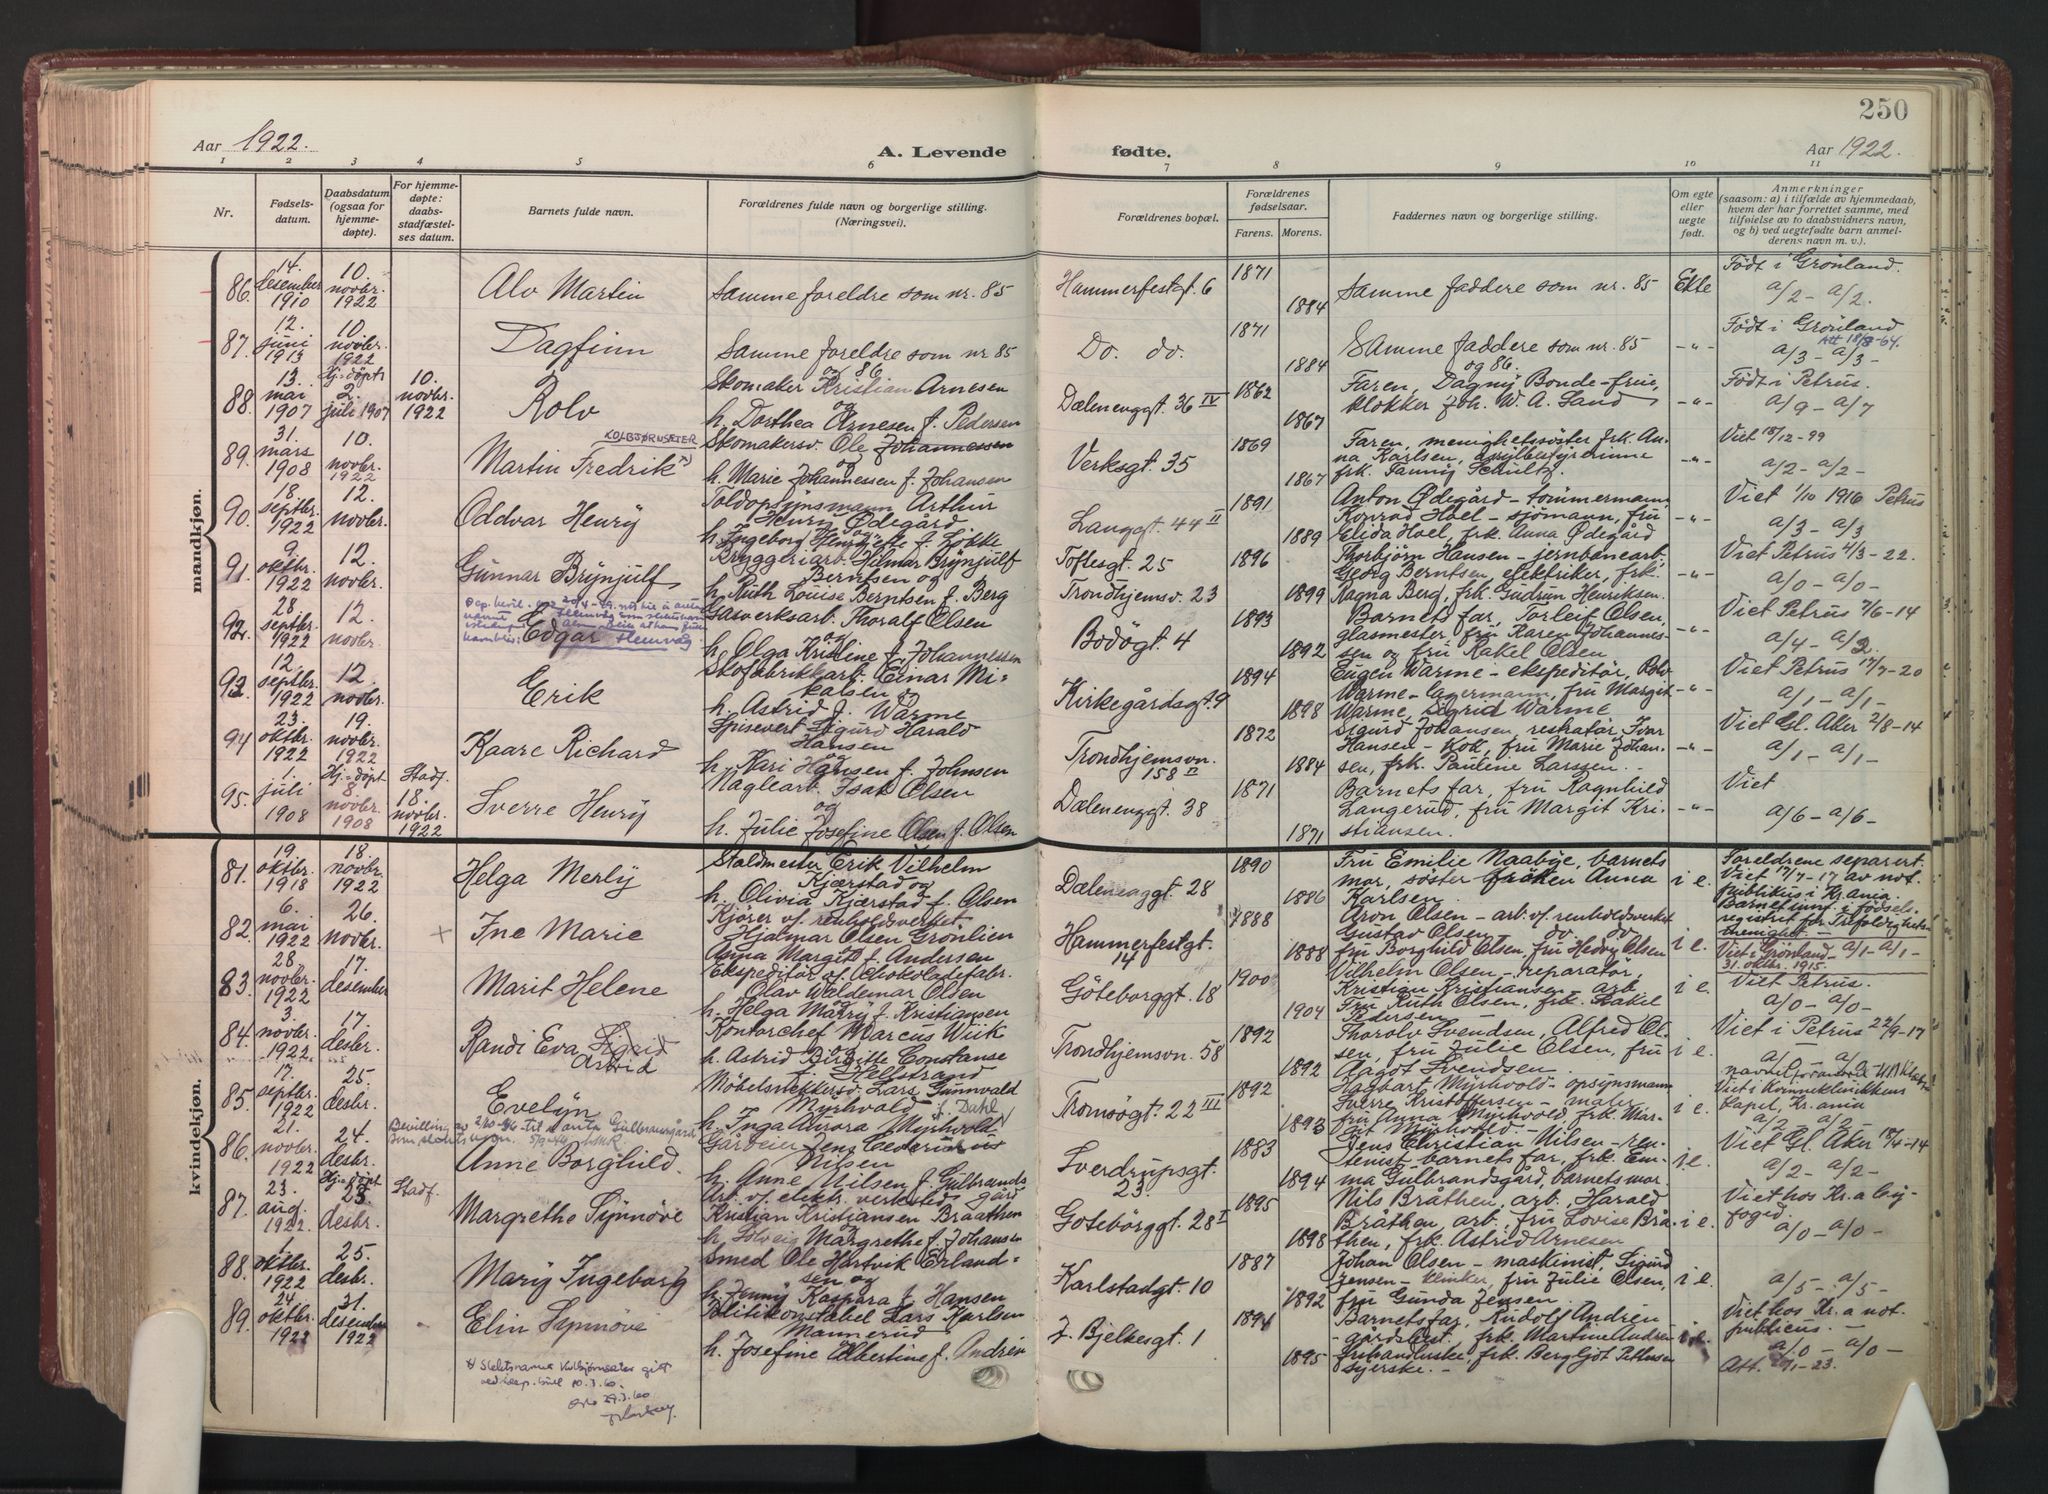 250
Aar 1922.
A. Levende
fødte.
Aar 1922.
1 2 3 4 5 6 7 8 9 10 11
Nr.
Fødsels-
datum.
Daabsdatum
(ogsaa for
hjemme-
døpte).
For hjemme-
døpte:
daabs-
stadfæstel-
ses datum.
Barnets fulde navn.
Forældrenes fulde navn og borgerlige stilling.
(Næringsvei).
Forældrenes bopæl.
Forældrenes
fødselsaar.
Farens. Morens.
Faddernes navn og borgerlige stilling.
Om egte
eller
uegte
født.
Anmerkninger
(saasom: a) i tilfælde av hjemmedaab,
hvem der har forrettet samme, med
tilføielse av to daabsvidners navn,
og b) ved uegtefødte barn anmel-
derens navn m. v.).
mandkjøn.
86. 14. desember 1910
10. novbr. 1922
Alv Martin
Samme foreldre som nr. 85
Hammerfestgt. 6
1871
1884
Samme faddere som nr. 85
Ekte
Født i Grönland.
a/2 - a/2.
87. 12. juni 1913
10. novbr. 1922
Dagfinn
Samme foreldre som nr 85
og 86
Do. do.
1871
1884
Samme faddere som nr. 85
og 86.
-"-
Født i Grönland
Att 18/8-64.
a/3 - a/3 -
88. 13. mai 1907
Hj=døpt 2. juli 1907
10. novbr. 1922
Rolv
Skomaker Kristian Arnesen
og
h. Dorthea Arnesen f. Pedersen
Dælenenggt. 36 IV
1862
1867
Faren, Dagny Bonde - frue,
klokker Joh. W. A. Sand
-"-
Født i Petrus.
a/9 - a/7
89. 31. mars 1908
10. novbr. 1922
KOLBJØRNSÆTER
Martin Fredrik x)
Skomakersv. Ole Johannessen
og
h. Marie Johannessen f. Johansen
Verksgt. 35
1869
1867
Faren, menighetssöster frk. An-
na Karlsen, asylbestyrerinne
frk. Fanny Schultz.
-"-
Viet 18/12-99
a/2 - a/2 -
90. 18 septbr. 1922
12. novbr.
Oddvar Henry
Toldopsynsmann Arthur
Henry Ødegård
h. Ingeborg Henriette f. Løkke
Langgt. 44 II
1891
1889
Anton Ødegård - tømmermann,
Konrad Hoel - sjömann, fru
Elida Hoel, frk. Anna Ødegård
-"-
Viet 1/10 1916 Petrus
a/3 - a/3
91. 9 oktbr. 1922
12. novbr.
Gunnar Brynjulf
Bryggeriarb. Hilmar Brynjulf
Berntsen og
h. Ruth Louise Berntsen f. Berg
Toftesgt. 25
Trondhjemsv. 23
1896
1899
Thorbjörn Hansen - jernbanearb.
Georg Berntsen, elektriker, frk.
Ragna Berg, frk. Gudrun Henriksen.
-"-
Viet Petrus 4/3 - 22.
a/0 - a/0 -
92. 28 septbr. 1922
12 novbr.
Edgar Flemvåg
Gasverksarb. Thoralf Olsen
og
h. Olga Kristine f. Johannessen
Bodögt. 4
1893
1892
Barnets far, Torleif Olsen,
glasmester, fru Karen Johannes-
sen og fru Rakel Olsen
-"-
Viet Petrus 7/6 - 14
a/4 - a/2
93. 12. septbr. 1922
12. novbr.
Erik
Skofabrikkarb. Einar Mi-
kalsen og
h. Astrid f. Warme
Kirkegårdsgt. 9
1894
1898
Eugen Warme - ekspeditör, Rolv
Warme - lagermann, fru Margit
Warme, Sigrid Warme
-"-
Viet Petrus 17/7 - 20
a/1 - a/1 -
94 23. oktbr. 1922
19. novbr. 1922
Kaare Richard
Spisevert Sigurd Harald
Hansen
og
h. Kari Hansen f. Johnsen
Trondhjemsvn.
158 II
1872
1884
Sigurd Johansen, restratör, Ivar
Hansen - kok, fru Marie Johan-
sen, frk. Pauline Larssen. -
-"-
Viet Gl. Aker 2/8 - 14
a/1 - a/1 -
95. 1. juli 1908
Hj=døpt 8. novbr. 1908
Stadf. 18. novbr. 1922
Sverre Henry
Naglearb. Isak Olsen
og
h. Julie Josefine Olsen f. Olsen
Dælenenggt. 38
1871
1871
Barnets far, fru Ragnhild
Langerud, fru Margit Kri-
stiansen.
-"-
Viet
a/6 - a/6 -
kvindekjøn.
81. 19. oktbr. 1918
18 novbr. 1922
Helga Merly
Staldmester Erik Vilhelm
Kjærstad og
h. Olivia Kjærstad f. Olsen
Dælenenggt. 28
1890
1886
Fru Emilie Naabye, barnets
mor, söster fröken Anna
Karlsen
i e.
Foreldrene separert.
Viet 17/7 - 17 av not.
publikus i Kr.ania.
Barnet innf. i födsel.
registret for Trefoldighets-
menighet. -
82. 6. mai 1922
26. novbr.
+
Ine Marie
Kjörer v/ renholdsverket
Hjalmar Olsen Grönlien
Anna Margit f. Andersen
Hammerfestgt.
14
1888
1888
Aron Olsen - arb. v/ renholdsverket
Gustav Olsen do. do
fru Borghild Olsen, fru Hedvig Olsen
i e.
Viet i Grönland - a/1 - a/1 -
31. oktbr. 1915.
83. 28 novbr. 1922
17. desember
Marit Helene
Ekspeditör v/ chokoladefabr.
Olav Waldemar Olsen
h. Helga Mary f. Kristiansen
Göteborggt. 18
1900
1904
Vilhelm Olsen - reparatör,
Kristian Kristiansen - arb.
Fru Ruth Olsen, frk. Rakel
Pedersen -
i e.
Viet Petrus.
a/0 - a/0 -
84. 3. novbr. 1922
17. desbr.
Randi Eva Sigrid
Astrid
Kontorchef Marcus Wiik
og
h. Astrid Birgitte Constanse
f. Hellstrand
Trondhjemsvn. 58
1892
1892
Thorolv Svendsen, Alfred Ol-
sen, fru Julie Olsen, fru
Aagot Svendsen
i e.
Viet i Petrus 22/9 - 17
85. 17. septbr. 1922
25. desbr.
Evelyn
Möbelsnekkersv. Lars Gunnvald
Myrhvold
h. Inga Aurora Myrhvold f. Dahl
Tromsögt. 22 III
1892
1893
Hagbart Myrhvold - opsynsmann
Sverre Kristoffersen - maler
fru Anna Myrhvold, frk. Mar-
git Myrhvold. -
i e.
Viet i Kvinneklinikkens
kapel, Kr.ania
a/2 - a/2 -
86. 21. novbr. 1922
24. desbr.
Anne Borghild.
Gårdeier Jens Cederinus
Nilsen
h. Anne Nilsen f. Gulbrands
gård
Sverdrupsgt.
23.
1883
1894
Jens Christian Nilsen - ren-
tenist, barnets far, frk. Em-
ma Gulbrandsgård, barnets mor
i e.
Viet Gl. Aker 18/4 - 14
a/2 - a/2 -
87. 23. aug. 1922
Hj=døpt
Stadf. 23 desbr.
Margrethe Synnöve
Arb. v/ elektr. verksted
Kristian Kristiansen Braathen
h. Solveig Margrethe f. Johansen
Götebörggt. 28 I
1895
1898
Nils Bråthen, arb., Harald
Bråthen, arb., fru Lovise Brå-
then, frk. Astrid Arnesen
i e.
Viet hos Kr.a by-
foged.
a/0 - a/0 -
88. 1. oktbr. 1922
25. desbr.
Mary Ingeborg
Smed Ole Hartvik Erland-
sen og
h. Jenny Kaspara f. Hansen
Karlstadgt. 10
1887
1892
Johan Olsen - maskinist, Sigurd
Jensen - klinker, fru Julie Olsen,
fru Gunda Jensen.
i e.
a/5 - a/5 -
89. 24. oktbr. 1922
31. desember 1922
Elin Synnöve
Politikonstabel Lars Karlsen
Mannerud
h. Josefine Albertine f. Andrén
J. Bjelkesgt. 1
1894
1895
Barnets far, Rudolf Andrén
- gårdsbest., frk. Martine Andrén
frihandlerske, frk. Bergljot Pettersen
syerske. -
i e.
Viet hos Kr.a not.
publicus. -
a/0 - a/0 -
Att. 20/1 - 23.
x) Slektsnavnet Kolbjørnsæter gitt
ved dep. bevill 10.3.60.
Oslo 29.3.60